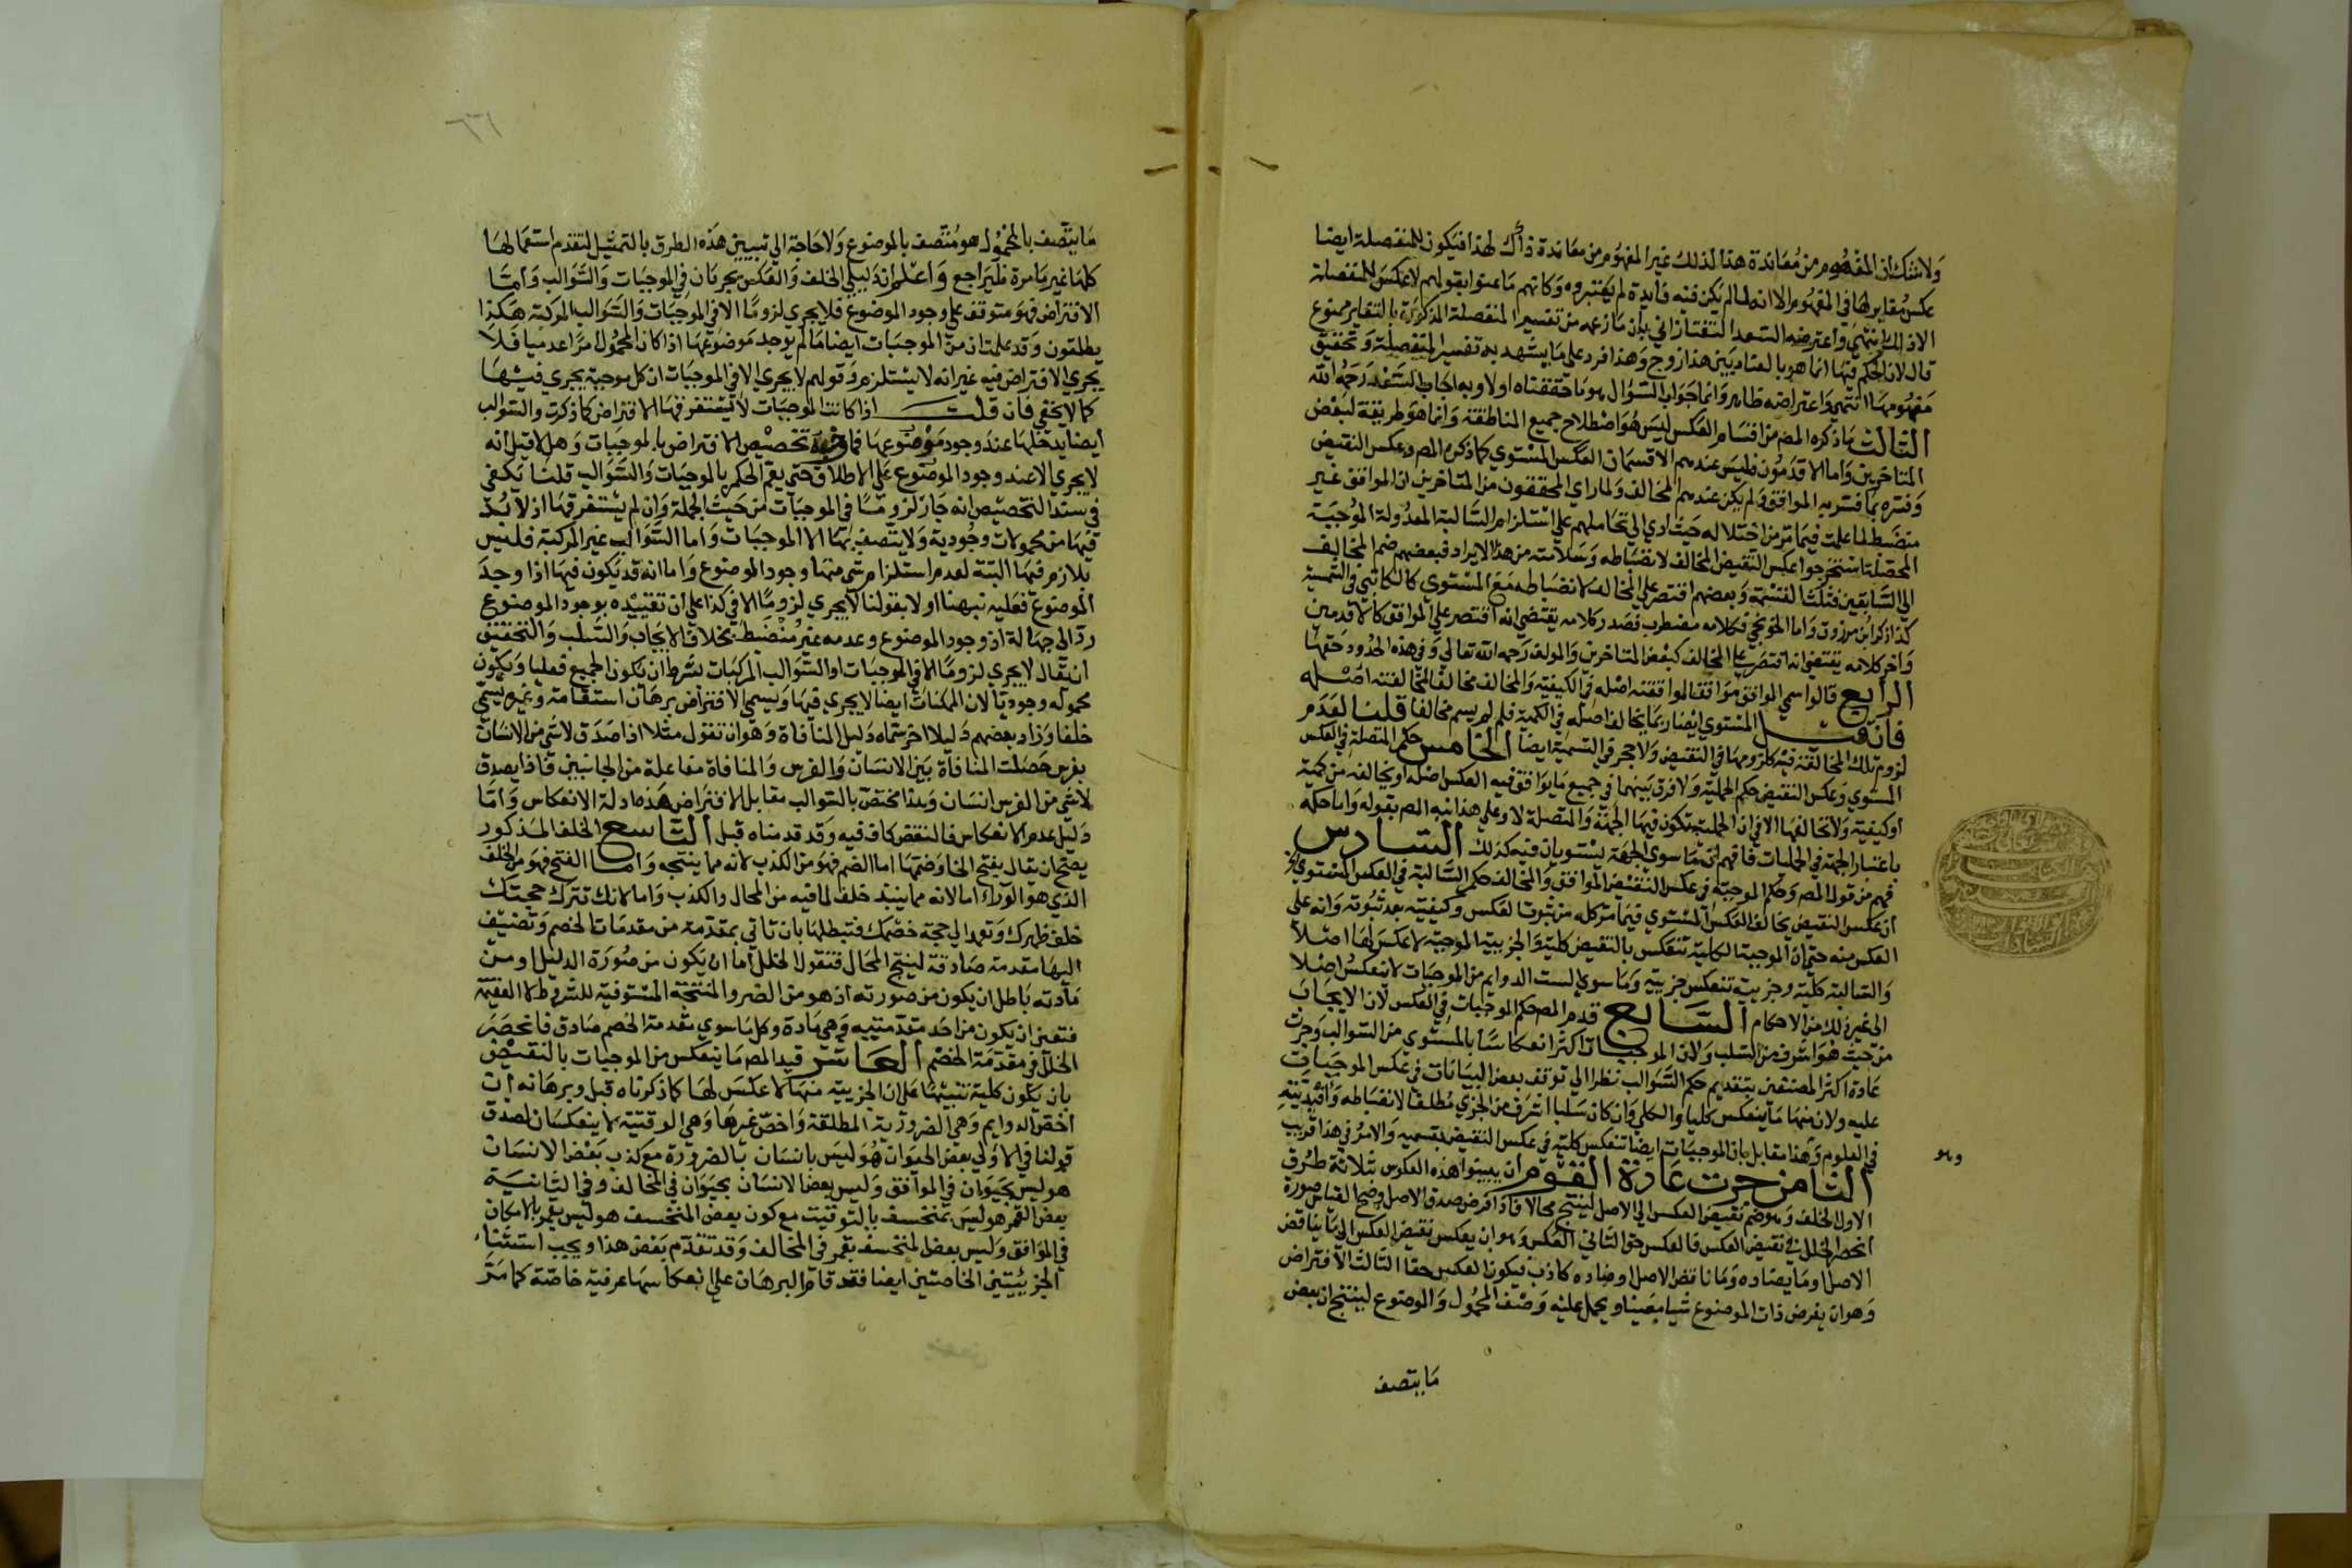 ولا شك ان المفهوم من معاندة هذا لذلك غير المفهوم من معاندة ذاك لهذا فيكون للمنفصلة ايضا
عكس مغاير لها في المفهوم الا انه لما لم يكن فيه فايدة لم يعتبروه وكانهم ما عنوا بقولهم لا عكس للمنفصلة
الا ذلك انتهي واعترضه السعد التفتازاني بان ما زعمه من تفسير المنفصلة المذكورة بالتغاير ممنوع
قال لان الحكم فيها انما هو بالعناد بين هذا زوج وهذا فرد علي ما يشهد به تفسير المنفصلة وتحقيق
مفهومها انتهي واعتراضه ظاهر وانما جواب السؤال هو ما حققناه اولا وبه اجاب السعد رحمه الله
الثالث ما ذكره المص من اقسام العكس ليس هو اصطلاح جميع المناطقة وانما هو طريقة لبعض
المتاخرين واما الاقدمون فليس عندهم الا قسمان العكس المستوي كما ذكره المص وعكس النقيض
وفسره بما فسر به الموافق ولم يكن عندهم المخالف ولما راي المحققون من المتاخرين ان الموافق غير
منضبط لما علمت فيما مر من اختلاله حيث ادي الي تحاملهم علي استلزام السالبة المعدولة الموجبة
المحصلة استخرجوا عكس النقيض المخالف لانضباطه وسلامته من هذا الايراد فبعضهم ضم المخالف
الي السابقين فثلث القسمة وبعضهم اقتصر علي المخالف لانضباطه مع المستوي كالكاتبي في الشمسية
كذا ذكر ابن مرزوق واما الخونجي فكلامه مضطرب فصدر كلامه يقتضي انه اقتصر علي الموافق كالاقدمين
واخر كلامه يقتضي انه اقتصر علي المخالف كبعض المتاخرين والمولف رحمه الله تعالي وفي هذه الحدود حقها
الرابع قالوا سمي الموافق موافقا لموافقته اصله في الكيفية والمخالف مخالفا لمخالفته اصله
فان قيل المستوي ايضا ربما يخالف اصله في الكمية فلم لم يسم مخالفا قلنا لعدم
لزوم تلك المخالفة فيه كلزومها في النقيض ولا حجر في التسمية ايضا الخامس حكم المتصلة في العكس
المستوي وعكس النقيض حكم الحملية ولا فرق بينهما في جميع ما يوافق فيه العكس اصله او يخالفه من كمية
او كيفية ولا تخالفها الا في ان الحملية تكون فيها الجهة والمتصلة لا وعلي هذا نبه المص بقوله واما حكمه
باعتبار الجهة في الحمليات فافهم ان ما سوي الجهة يستويان فيه كذلك السادس
فهم من قول المص وحكم الموجبة في عكس النقيض الموافق والمخالف حكم السالبة في العكس المستوي
ان عكس النقيض يخالف العكس المستوي فيما مر كله من ثبوت العكس وكيفيته بعد ثبوته وانه علي
العكس منه حتي ان الموجبة الكلية تنعكس بالنقيض كلية والجزيية الموجبة لا عكس لها اصلا
والسالبة كلية وجزيية تنعكس جزيية وما سوي الست الدوايم من الموجبات لا ينعكس اصلا
الي غير ذلك من الاحكام السابع قدم المص حكم الموجبات في العكس لان الايجاب
من حيث هو اشرف من السلب ولان الموجبات اكثر انعكاسا بالمستوي من السوالب وجرت
عادة اكثر المصنفين بتقديم حكم السوالب نظرا الي توقف بعض البيانات في عكس الموجبات
عليه ولان منها ما ينعكس كليا والكلي وان كان سلبا اشرف من الجزي مطلقا لانضباطه وافيديته
في العلوم وهذا مقابل بان الموجبات ايضا تنعكس كلية في عكس النقيض بقسميه والامر في هذا قريب
وهو
الثامن جرت عادة القوم ان يبينوا هذه العكوس بثلاثة طرق
الاول الخلف وهو ضم نقيض العكس الي الاصل لينتج محالا فاذا فرض صدق الاصل وصحة القياس صورة
انحصر الخلل في نقيض العكس فالعكس حق الثاني العكس وهو ان يعكس نقيض العكس الي ما يناقض
الاصل او ما يضاده وما ناقض الاصل او ضاده كاذب فيكون العكس حقا الثالث الافتراض
وهو ان يفرض ذات الموضوع شيا معينا ويحمل عليه وصف المحمول والموضوع لينتج ان بعض
ما يتصف
٢٦١
ما يتصف بالمحمول هو متصف بالموضوع ولا حاجة الي تبيين هذه الطرق بالتمثيل لتقدم استعمالها
كلها غير ما مرة فليراجع واعلم ان دليلي الخلف والعكس يجريان في الموجبات والسوالب واما
الافتراض فهو متوقف علي وجود الموضوع فلا يجري لزوما الا في الموجبات والسوالب المركبة هكذا
يطلقون وقد علمت ان من الموجبات ايضا ما لم يوجد موضوعها اذا كان المحمول امرا عدميا فلا
يجري الافتراض فيه غير انه لا يستلزم وقولهم لا يجري الا في الموجبات ان كل موجبة يجري فيها
كما لا يخفي فان قلت اذا كانت الموجبات لا يستغرقها الافتراض كما ذكرت والسوالب
ايضا يدخلها عند وجود موضوعها فما وجه تخصيص الافتراض بالموجبات وهلا قيل انه
لا يجري الا عند وجود الموضوع علي الاطلاق حتي يعم الحكم بالموجبات والسوالب قلنا يكفي
في سند التخصيص انه جار لزوما في الموجبات من حيث الجملة وان لم يستغرقها اذ لا بد
فيها من محمولات وجودية ولا يتصف بها الا الموجبات واما السوالب غير المركبة فليس
بلازم فيها البتة لعدم استلزام شي منها وجود الموضوع واما انه قد يكون فيها اذا وجد
الموضوع فعليه نبهنا اولا بقولنا لا يجري لزوما الا في كذا علي ان تقييده بوجود الموضوع
رد الي جهالة اذ وجود الموضوع وعدمه غير منضبط بخلاف الايجاب والسلب والتحقيق
ان يقال لا يجري لزوما الا في الموجبات او السوالب المركبات بشرط ان يكون الجميع فعليا ويكون
محموله وجوديا لان الممكنات ايضا لا يجري فيها ويسمي الافتراض برهان استقامة وغيره يسمي
خلفا وزاد بعضهم دليلا اخر سماه دليل المنافاة وهو ان تقول مثلا اذا صدق لا شي من الانسان
بفرس حصلت المنافاة بين الانسان والفرس والمنافاة مفاعلة من الجانبين فاذا يصدق
لا شي من الفرس انسان وهذا مختص بالسوالب مقابل الافتراض هذه ادلة الانعكاس واما
دليل عدم الانعكاس فالنقض كاف فيه وقد قدمناه قبل التاسع الخلف المذكور
يصح ان يقال بفتح الخا وضمها اما الضم فهو من الكذب لانه مما ينتجه واما الفتح فهو من الخلف
الذي هو الوراء اما لانه مما ينبذ خلف لما فيه من المحال والكذب واما لانك تترك حجتك
خلف ظهرك وتعمد الي حجة خصمك فتبطلها بان تاتي بمقدمة من مقدمات الخصم وتضيف
اليها مقدمة صادقة لينتج المحال فتقول الخلل اما ان يكون من صورة الدليل او من
مادته باطل ان يكون من صورته اذ هو من الضروب المنتجة المستوفية للشروط الافقية
فتعين ان يكون من احد مقدمتيه وهي مادة وكل ما سوي مقدمة الخصم صادق فانحصر
الخلل في مقدمة الخصم العاشر قيد المص ما ينعكس من الموجبات بالنقيض
بان يكون كلية تنبيها علي ان الجزيية منها لا عكس لها كما ذكرناه قبل وبرهانه ان
اخص الدوايم وهي الضرورية المطلقة واخص غيرها وهي الوقتية لا ينعكسان لصدق
قولنا في الاولي بعض الحيوان هو ليس بانسان بالضرورة مع كذب بعض الانسان
هو ليس بحيوان في الموافق وليس بعض الانسان بحيوان في المخالف وفي الثانية
بعض القمر هو ليس بمنخسف بالتوقيت مع كون بعض المنخسف هو ليس بقمر بالامكان
في الموافق وليس بعض المنخسف بقمر في المخالف وقد تقدم بعض هذا ويجب استثناء
الجزييتين الخاصتين ايضا فقد قام البرهان علي انعكاسهما عرفية خاصة كما مر